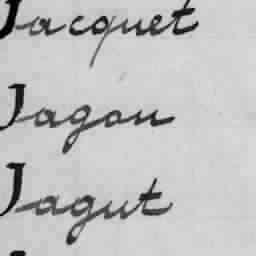 Jacquet
Jagou
Jagut